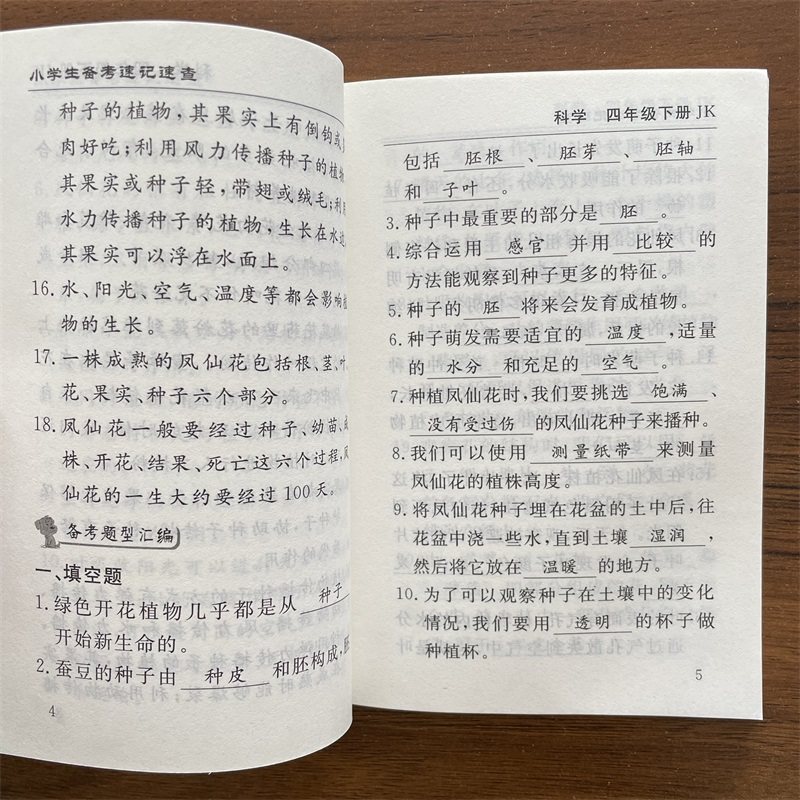 小学生备考速记速查
种子的植物，其果实上有倒钩或
肉好吃；利用风力传播种子的植物
其果实或种子轻，带翅或绒毛；利
水力传播种子的植物，生长在水边
其果实可以浮在水面上。
16.水、阳光、空气、温度等都会影响植
物的生长。
17.一株成熟的凤仙花包括根、茎、叶
花、果实、种子六个部分。
18.凤仙花一般要经过种子、幼苗、
株、开花、结果、死亡这六个过程，凤
仙花的一生大约要经过100天。
备考题型汇编
一、填空题
1.绿色开花植物几乎都是从 种子
开始新生命的。
2.蚕豆的种子由 种皮 和胚构成，胚
4
科学 四年级下册 JK
包括 胚根 、 胚芽 、 胚轴
和 子叶 。
3.种子中最重要的部分是 胚 。
4.综合运用 感官 并用 比较 的
方法能观察到种子更多的特征。
5.种子的 胚 将来会发育成植物。
6.种子萌发需要适宜的 温度 ，适量
的 水分 和充足的 空气 。
7.种植凤仙花时，我们要挑选 饱满 、
没有受过伤 的凤仙花种子来播种。
8.我们可以使用 测量纸带 来测量
凤仙花的植株高度。
9.将凤仙花种子埋在花盆的土中后，往
花盆中浇一些水，直到土壤 湿润 ，
然后将它放在 温暖 的地方。
10.为了可以观察种子在土壤中的变化
情况，我们要用 透明 的杯子做
种植杯。
5